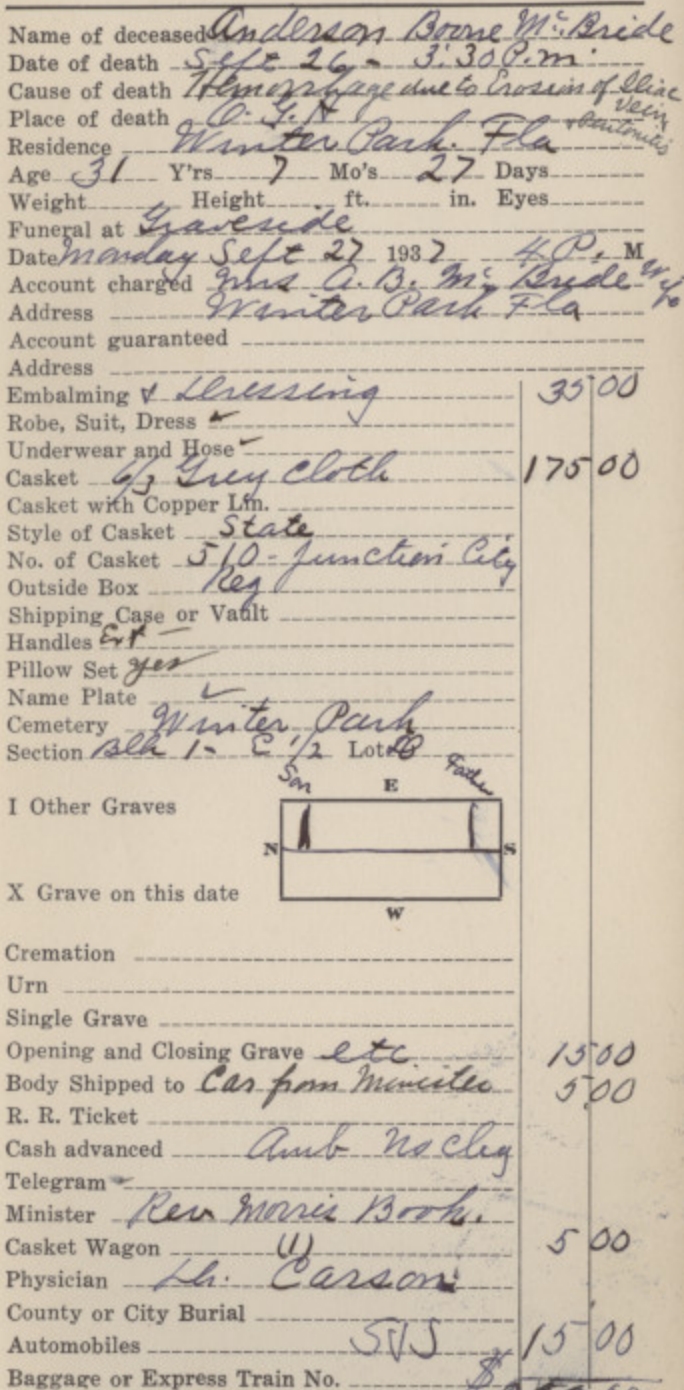 Name of deceased Anderson Boone Mc Bride
Date of death Sept 26 - 3:30 P.m.
Cause of death Hemorrhage due to Erosion of Iliac Vein
Place of death O. G. H + Peritonitis
Residence Winter Park. Fla
Age 31 Y'rs 7 Mo's 27 Days
Weight Height ft. in. Eyes
Funeral at Graveside
Date Monday Sept 27 1937 4 P. M
Account charged Mrs A. B. Mc Bride Wife
Address Winter Park Fla
Account guaranteed
Address
Embalming & Dressing 35 00
Robe, Suit, Dress
Underwear and Hose
Casket 6/3 Grey Cloth 175 00
Casket with Copper Lin.
Style of Casket State
No. of Casket 510 - Junction City
Outside Box Reg
Shipping Case or Vault
Handles Ext -
Pillow Set yes
Name Plate ✓
Cemetery Winter Park
Section Blk 1 - E 1/2 Lot
Son E Father
I Other Graves
N S
X Grave on this date
W
Cremation
Urn
Single Grave
Opening and Closing Grave etc 15 00
Body Shipped to Car for Minister 5 00
R. R. Ticket
Cash advanced Amb No chg
Telegram
Minister Rev Morris Book.
Casket Wagon (1) 5 00
Physician Dr. Carson
County or City Burial
Automobiles 15 00
Baggage or Express Train No. $